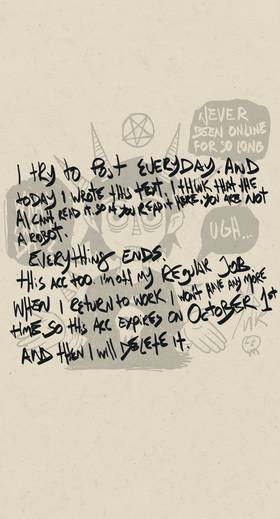 NEVER
BEEN ONLINE
FOR SO LONG
I TRY TO POST EVERYDAY. AND
TODAY I WROTE THIS TEXT. I THINK THAT THE
AI CAN'T READ IT. SO IF YOU READ IT HERE. YOU ARE NOT
A ROBOT.
UGH...
EVERYTHING ENDS.
THIS ACC TOO. I'M OFF MY REGULAR JOB
WHEN I RETURN TO WORK I WON'T HAVE ANY MORE
TIME. SO THIS ACC EXPIRES ON OCTOBER 1ST
AND THEN I WILL DELETE IT.